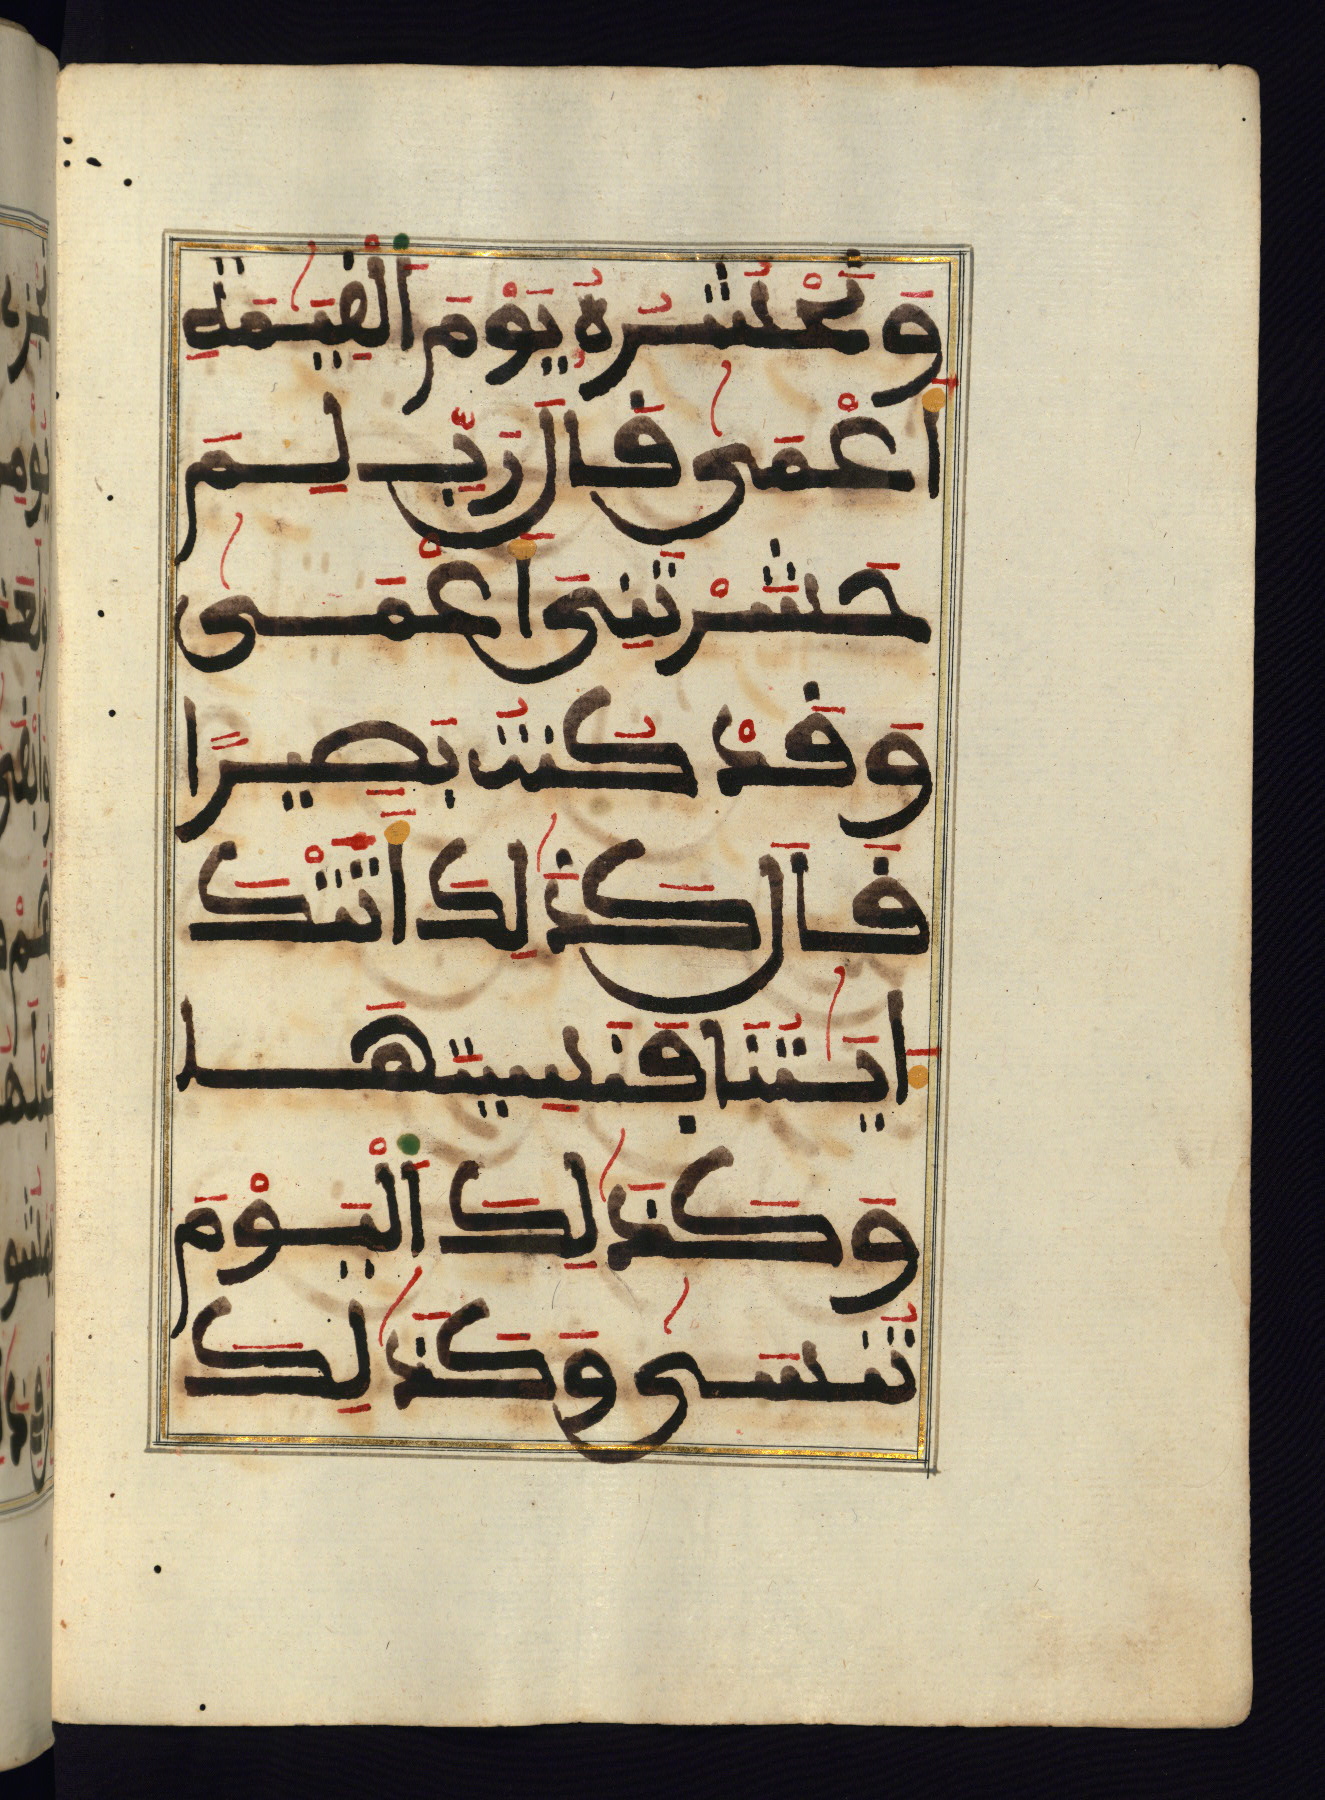 وَنَحْشُرُهُۥ يَوْمَ اَ۬لْقِيَٰمَةِ
أَعْمَىٰ قَالَ رَبِّ لِمَ
حَشَرْتَنِىَ أَعْمَىٰ
وَقَدْ كُنتُ بَصِيرًا
قَالَ كَذَٰلِكَ أَتَتْكَ
ءَايَٰتُنَا فَنَسِيتَهَا
وَكَذَٰلِكَ اَ۬لْيَوْمَ
تُنسَىٰ وَكَذَٰلِكَ